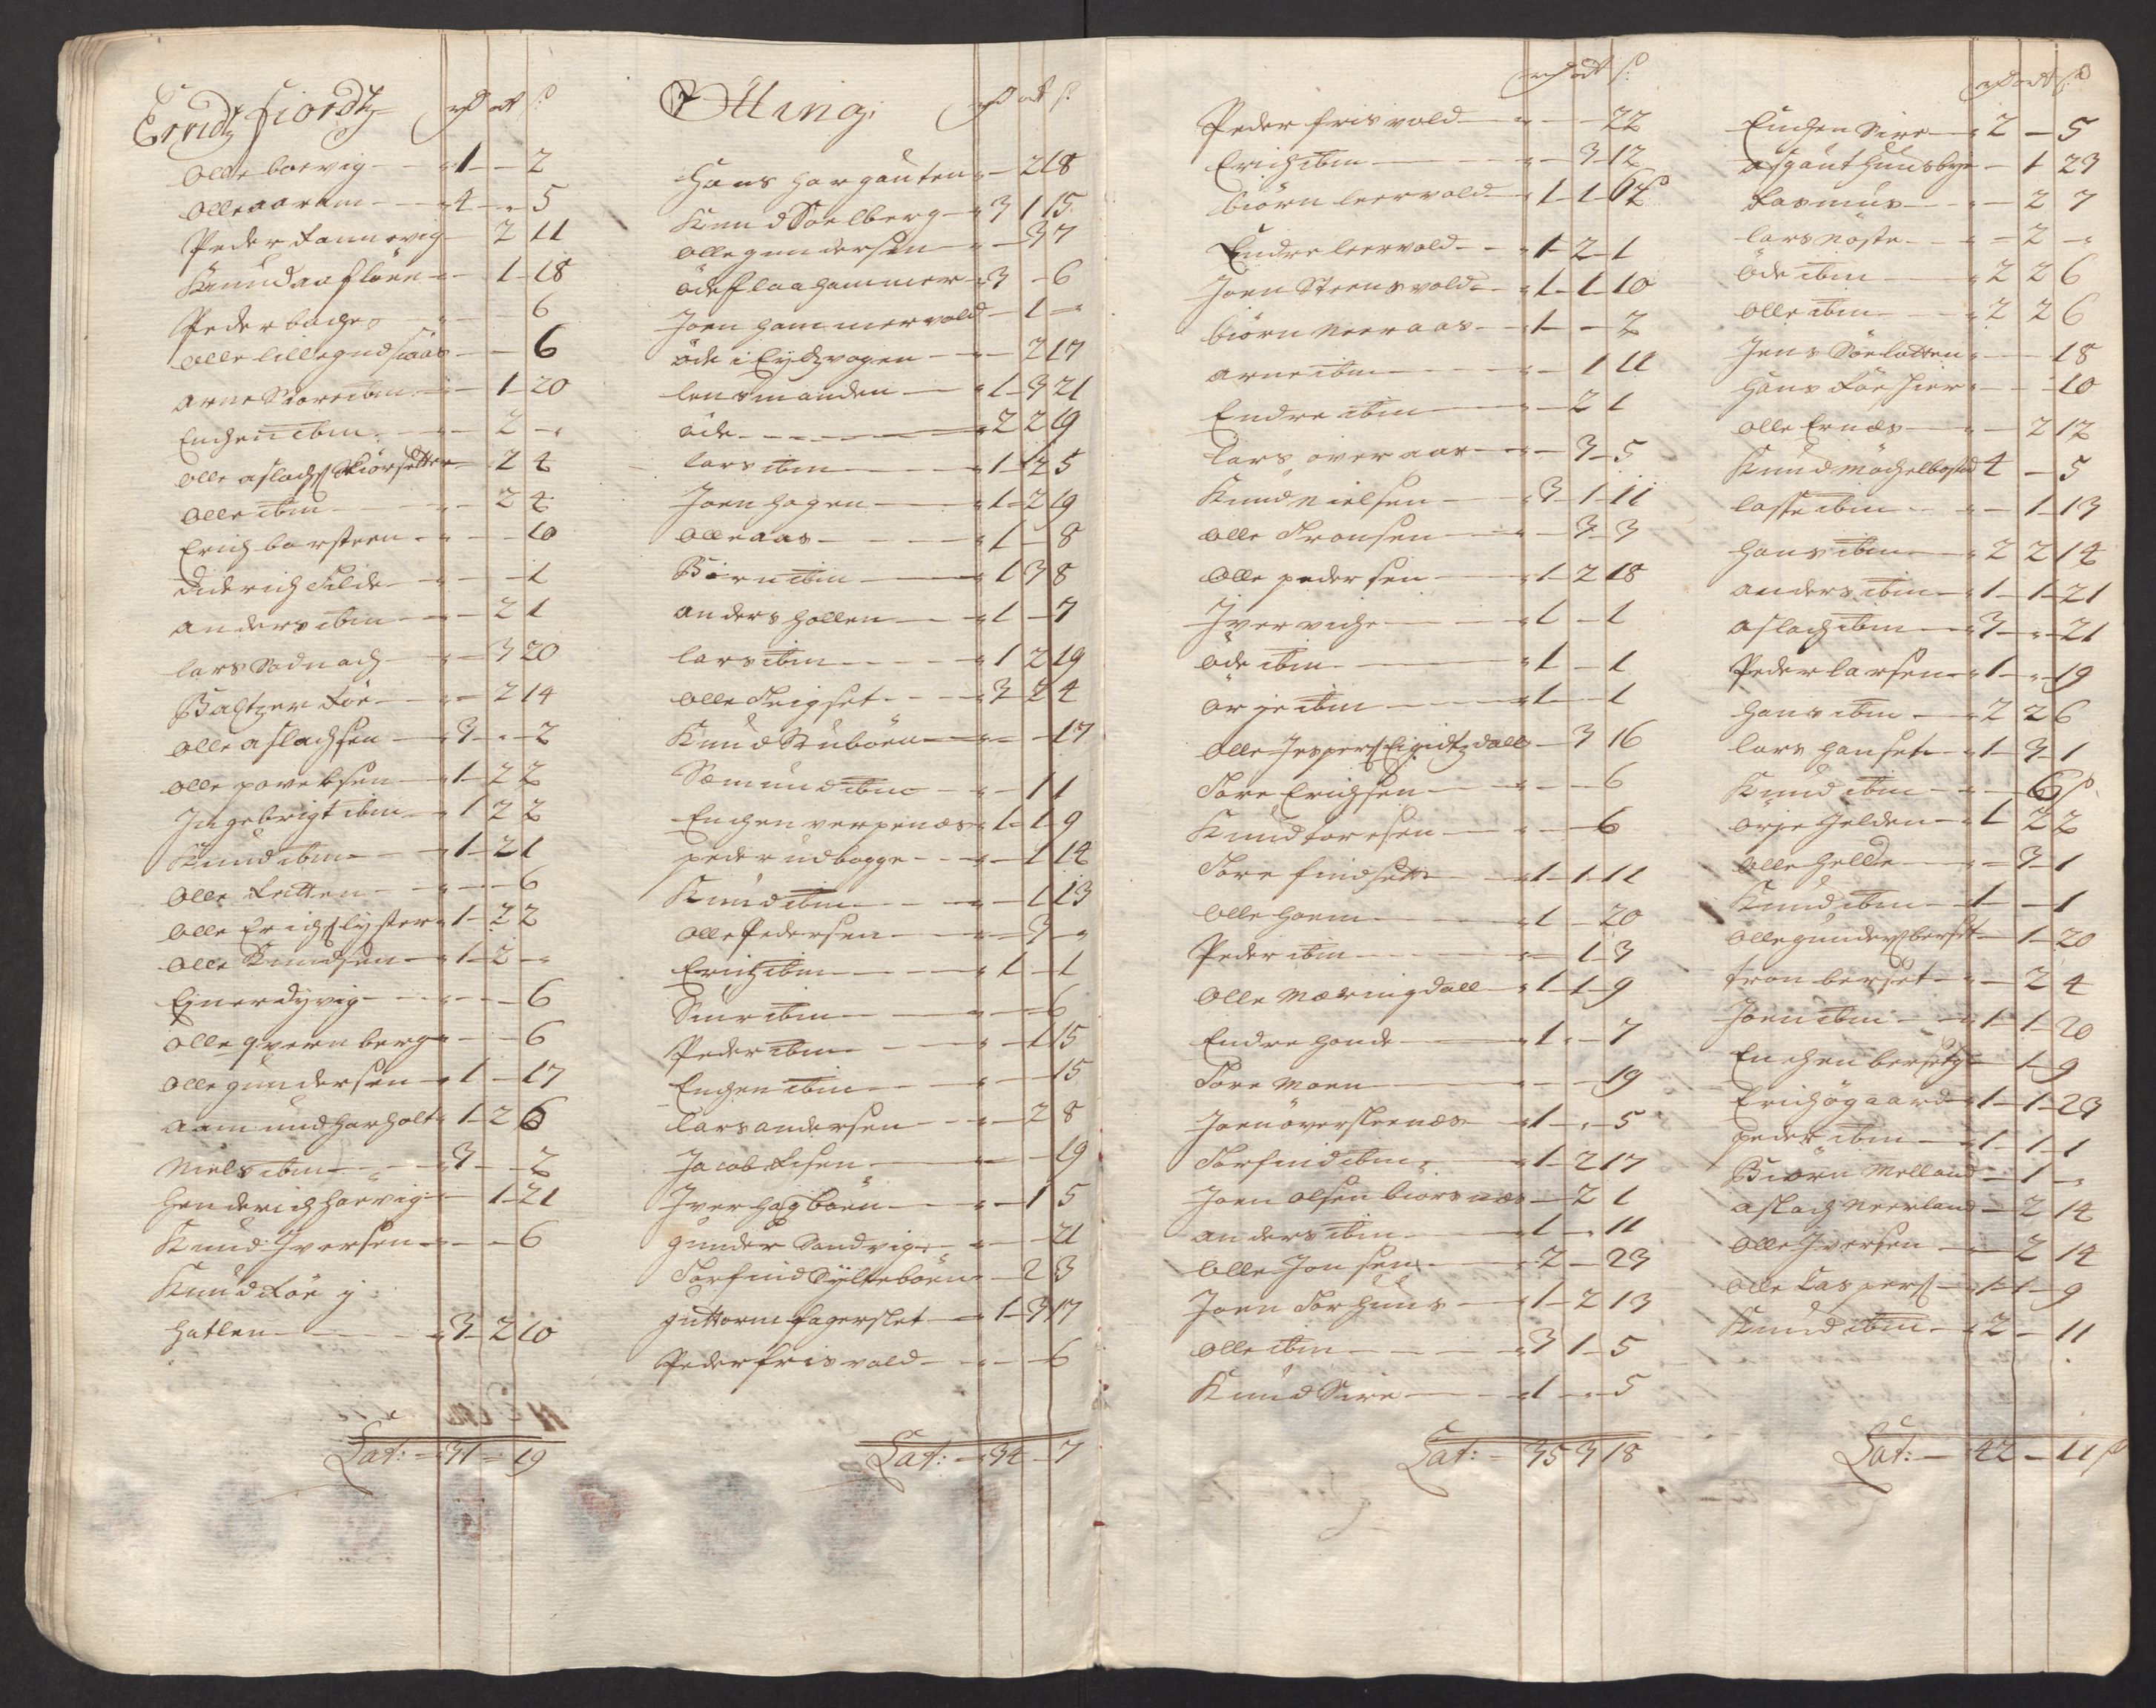 Erridtz Fiordtz rd ort s:
Olle boevig - 1 - 2
Olle aaram - 4 - 5
Peder Rannevig - 2 11
Knud aafloen - 1 18
Peder bache - 6
Olle lillegudsaas - 6
Arne Noreibm - 1 20
Enchen ibm - 2 -
Olle aslachs Skiørsetter - 2 4
Olle ibm - 2 4
Erich borsteen - 10
Diderich Tilde - 1
Anders ibm - 2 1
Lars Nadnach - 3 20
Baltzer Røe - 2 14
Olle aslachsen - 3 - 2
Olle povelsen - 1 2 2
Ingebrigt ibm - 1 2 2
Knud ibm - 1 2 1
Olle Retten - 6
Olle Erichs lyster - 1 2 2
Olle Knudsen - 1 2 -
Ejner dyvig - 6
Olle qvernberg - 6
Olle gundersen - 1 - 17
Aamund harholt - 1 2 6
Niels ibm - 3 - 2
Henderich horvig - 1 21
Knud Iversen - 6
Knud Røe i
hatlen - 3 2 10
Lat: - 31 - 19
Alling: rd ort s:
Hans hargauten - 2 18
Knud Soelberg - 3 1 15
Olle gundersen - 3 7
Øde flaahammer - 3 - 6
Joen hammervold - 1 -
Øde i Eydzvogen - 2 17
Lensmanden - 1 3 21
Øde - 2 2 19
Lars ibm - 1 2 5
Joen hagen - 1 2 19
Olle aas - 1 - 8
Biørn ibm - 1 3 8
Anders hollen - 1 - 7
Lars ibm - 1 2 19
Olle Teigset - 3 2 4
Knud Stubøen - 17
Samund ibm - 1 1
Enchen verpenæs - 1 1 9
Peder udbogge - 1 14
Knud ibm - 1 13
Olle Pedersen - 3 -
Erich ibm - 1 - 1
Siur ibm - 6
Peder ibm - 1 15
Enchen ibm - 15
Lars andersen - 2 8
Jacob Risen - 19
Iver hagboen - 1 5
Gunder Sandvig - 21
Torfind Syltebøen - 2 3
Guttorm fagerslet - 1 3 17
Peder frisvold - 6
Lat: - 34 - 7
rd ort s:
Peder frisvold - 22
Erich ibm - 3 12
Biørn leervold - 1 1
Endre leervold - 1 2 1
Joen Steensvold - 1 1 10
Biørn Neeraas - 1 - 2
Arne ibm - 1 11
Endre ibm - 2 1
Lars øveraas - 3 5
Knud Nielsen - 3 1 11
Olle Tronsen - 3 3
Olle pedersen - 1 2 18
Iver viche - 1 - 1
Øde ibm - 1 - 1
Ørje ibm - 1 - 1
Olle Jespers Eigidtzdall - 3 16
Tore Erichsen - 6
Knud toresen - 6
Tore findset - 1 1 11
Olle hoem - 1 - 20
Peder ibm - 1 3
Olle Meeringdall - 1 1 9
Endre hands - 1 - 7
Tore Moen - 19
Joen øversteenæs - 1 - 5
Torfind ibm - 1 2 17
Joen olsen biørsnæs - 2 1
Anders ibm - 1 - 11
Olle Jonsen - 2 - 23
Joen Torhuus - 1 2 13
Olle ibm - 3 1 5
Knud Sire - 1 - 5
Lat: - 35 3 18
rd ort s:
Enchen Sire - 2 - 5
Asgaut hundsbye - 1 23
Rasmus - 2 7
Lars Nøste - 2 -
Øde ibm - 2 2 6
Olle ibm - 2 2 6
Jens Søeløtten - 18
Hans Røeshier - 10
Olle Ernæs - 2 12
Knud Møchelbostad 4 - 5
Lasse ibm - 1 13
Hans ibm - 2 2 14
Anders ibm - 1 1 21
Aslach ibm - 3 - 21
Peder larsen - 1 - 19
Hans ibm - 2 2 6
Lars hanset - 1 3 1
Knud ibm - 6 s
Ørje Gelden - 1 2 2
Olle helde - 3 1
Knud ibm - 1 - 1
Olle gunders berset - 1 20
Tron berset - 2 4
Joen ibm - 1 1 20
Enchen berset - 1 9
Erich øgaard - 1 1 23
Peder ibm - 1 1 1
Biørn Melland - 1 -
Aslach Neerland - 2 14
Olle Iversen - 2 14
Olle Caspers - 1 1 9
Knud ibm - 2 - 11
Lat: - 42 - 11 s